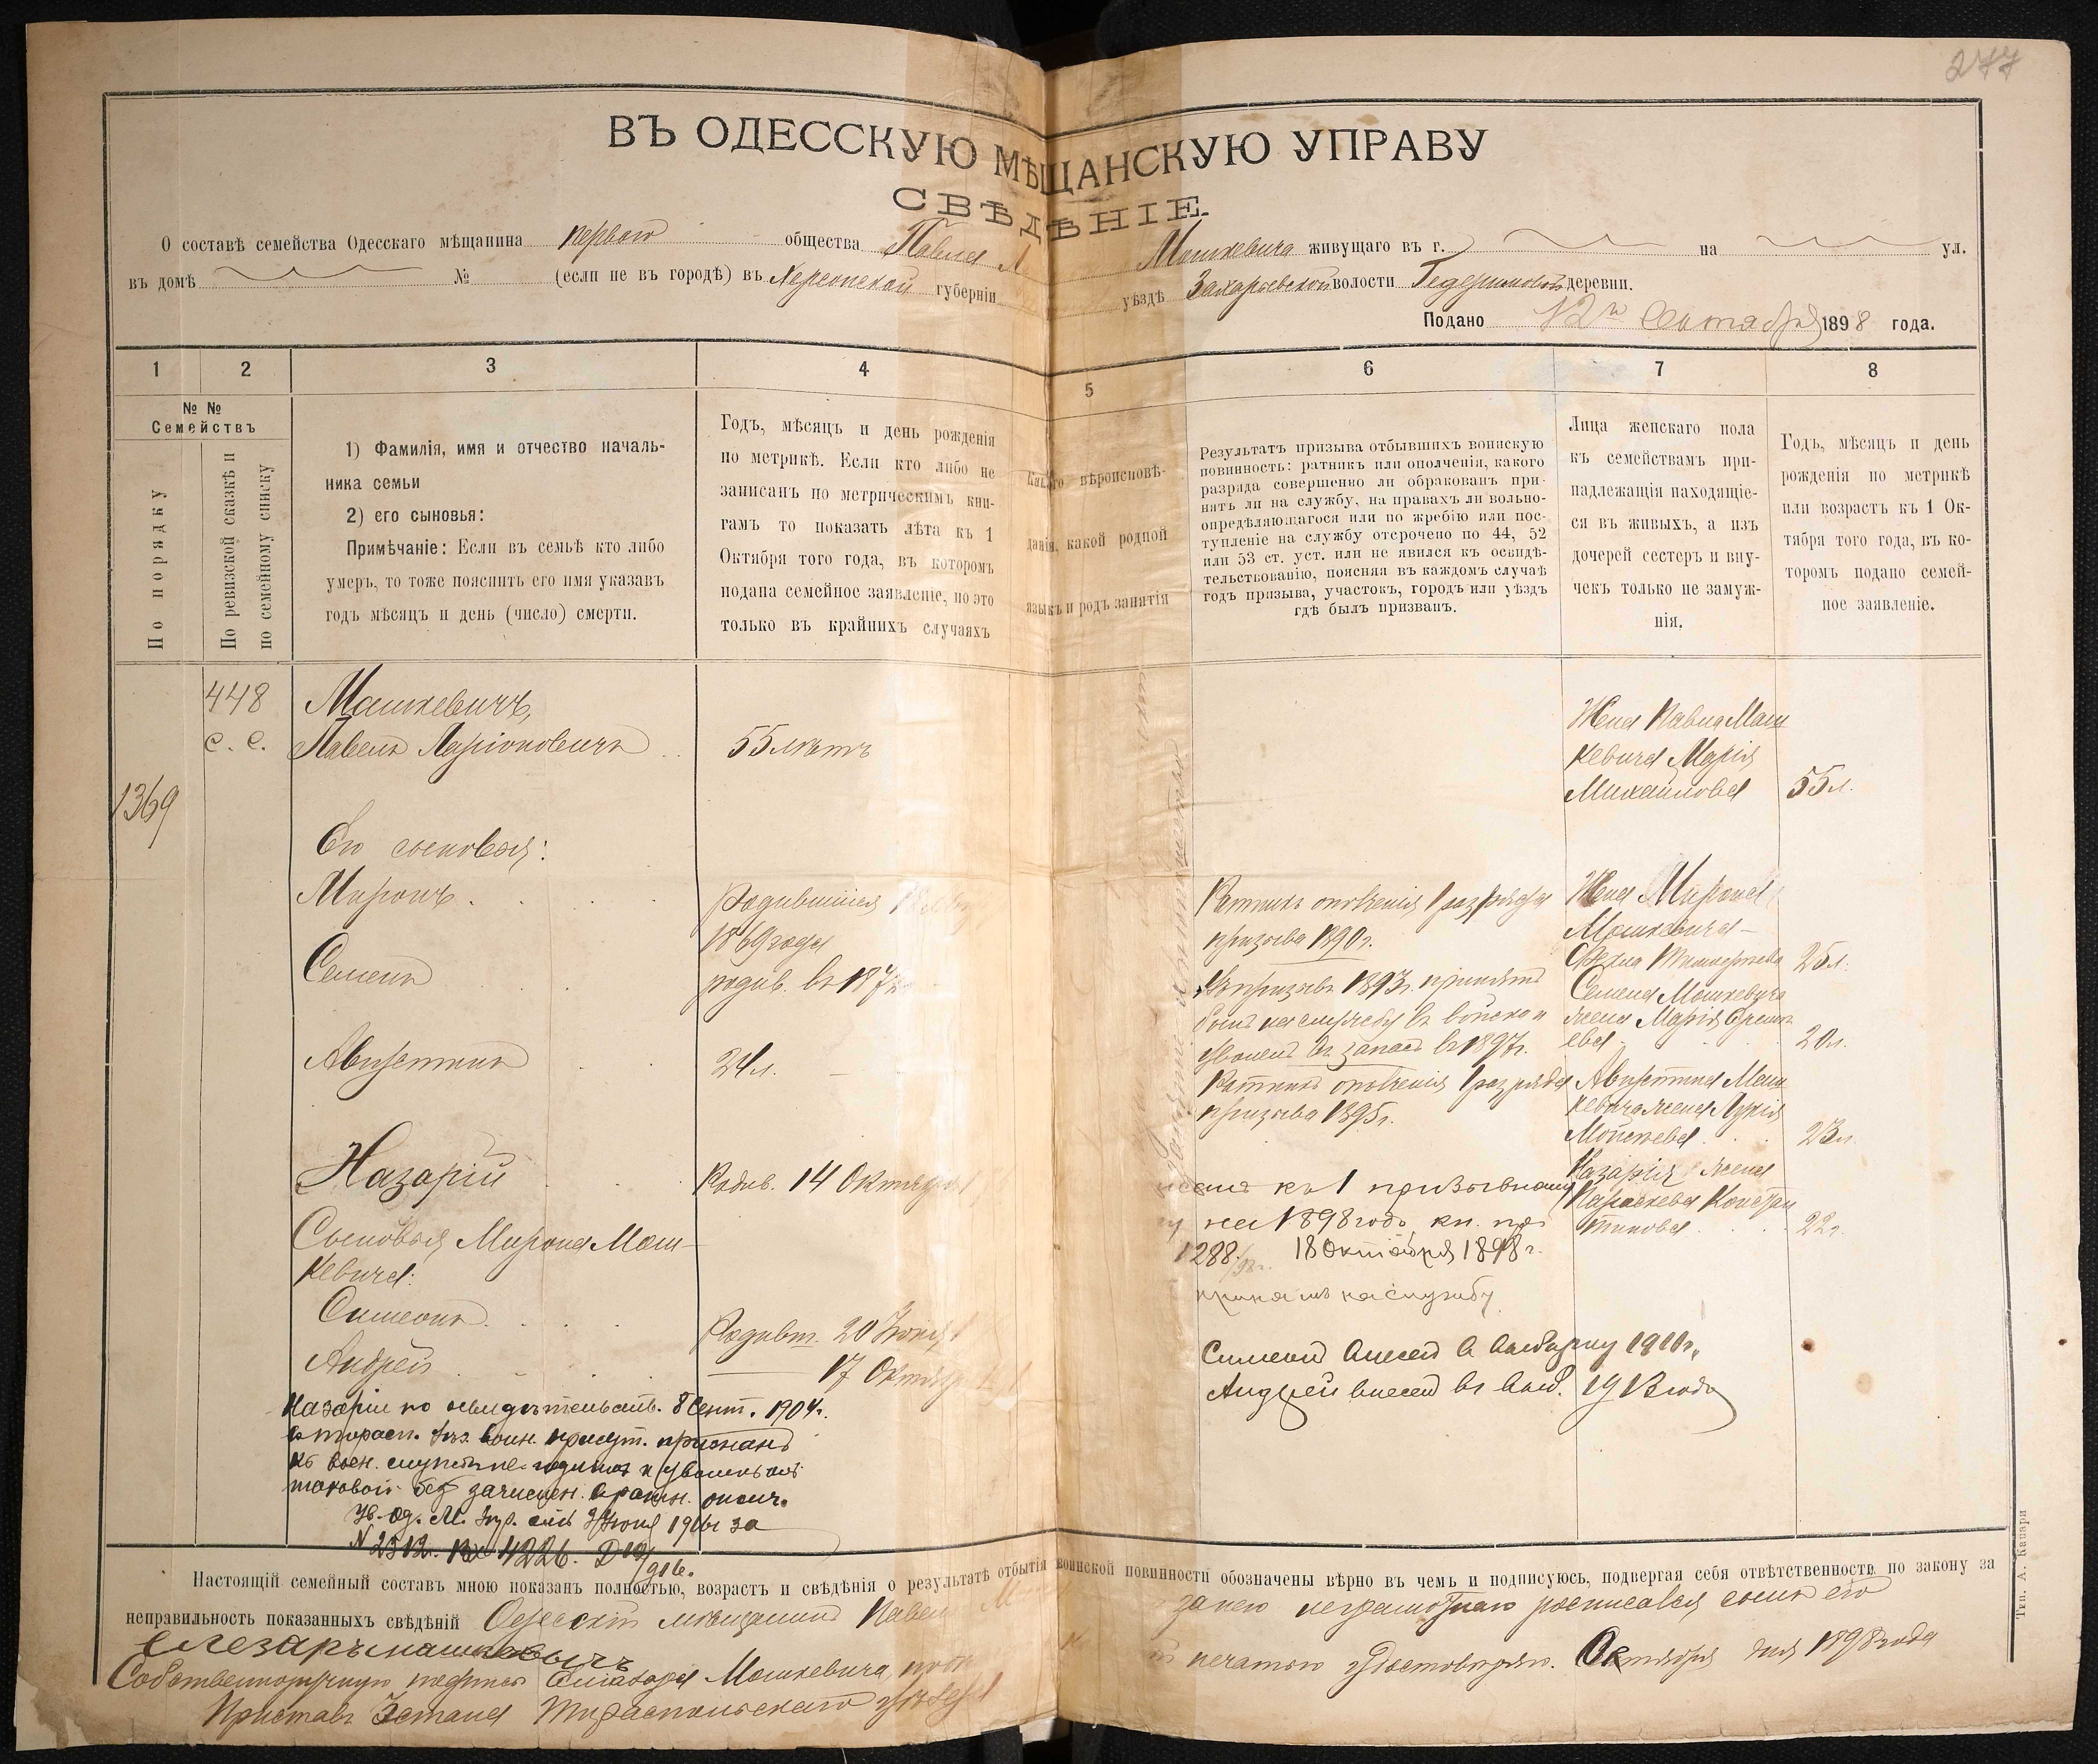 277
ВЪ ОДЕССКУЮ МѢЩАНСКУЮ УПРАВУ
СВѢДѢНІЕ
О составѣ семейства Одесскаго мѣщанина перваго общества Павла Машкевича живущаго въ г. на ул.
въ домѣ № (если не въ городѣ) въ Херсонской губерніи уѣздѣ Захарьевской волости Гедеримовой деревни.
Подано 12го Сентября 1898 года.
1 2 3 4 5 6 7 8
№ №
Семействъ
По порядку
По ревизской сказкѣ и
по семейному списку
1) Фамилія, имя и отчество началь-
ника семьи
2) его сыновья:
Примѣчаніе: Если въ семьѣ кто либо
умеръ, то тоже пояснить его имя указавъ
годъ мѣсяцъ и день (число) смерти.
Годъ, мѣсяцъ и день рожденія
по метрикѣ. Если кто либо не
записанъ по метрическимъ кни-
гамъ то показать лѣта къ 1
Октября того года, въ которомъ
подана семейное заявленіе, но это
только въ крайнихъ случаяхъ
Какого вѣроисповѣ-
данія, какой родной
языкъ и родъ занятія
Результатъ призыва отбывшихъ воинскую
повинность: ратникъ или ополченія, какого
разряда совершенно ли обракованъ при-
нятъ ли на службу, на правахъ ли вольно-
опредѣляющагося или по жребію или пос-
тупленіе на службу отсрочено по 44, 52
или 53 ст. уст. или не явился къ освидѣ-
тельствованію, поясняя въ каждомъ случаѣ
годъ призыва, участокъ, городъ или уѣздъ
гдѣ былъ призванъ.
Лица женскаго пола
къ семействамъ при-
надлежащія находящіе-
ся въ живыхъ, а изъ
дочерей сестеръ и вну-
чекъ только не замуж-
нія.
Годъ, мѣсяцъ и день
рожденія по метрикѣ
или возрастъ къ 1 Ок-
тября того года, въ ко-
торомъ подано семей-
ное заявленіе.
448
с. с.
1369
Машкевичъ,
Павелъ Ларіоновичъ
55 лѣтъ
Жена Павла Маш
кевича Марія
Михайлова 55 л.
Его сыновья:
Миронъ
Родившійся
1869 года
Ратникъ ополченія 1 разряда
призыва 1890 г.
Жена Мирона
Машкевича
25 л.
Семенъ
родив. въ 187
Въ призывъ 1893 г. принятъ
былъ на службу въ войско и
уволенъ въ запасъ въ 1897 г.
Семена Машкевича
жена Марія
ева 20 л.
Авксентий
24 л.
Ратникъ ополченія 1 разряда
призыва 1895 г.
Авксентия Маш
кевича жена
Моисеева 23 л.
Назарій
Родив. 14 Октября 1
къ 1 призывному
на 1898 годъ кн. пр.
1288 18 Октября 1898 г.
принятъ на службу
Назарія жена
Параскева Констан
тинова 22 г.
Сыновья Мирона Маш-
кевича:
Симеонъ
Родивш. 20 Іюня 1
Симеонъ внесенъ въ 1910 г.
Андрей
17 Октября
Андрей внесенъ въ 1913 году
Назарій по освидѣтельств. 8 Сент. 1904 г.
въ Тирасп. уѣз. воин. присут. признанъ
къ воен. службѣ не годнымъ и уволенъ отъ
таковой безъ зачислен. въ ратн. ополч.
Ув. Од. М. Упр. отъ Іюня 1916 за
N 2312. Вх 4226.
Настоящій семейный составъ мною показанъ полностью, возрастъ и свѣдѣнія о результатѣ отбытія воинской повинности обозначены вѣрно въ чемъ и подписуюсь, подвергая себя отвѣтственности по закону за
неправильность показанныхъ свѣдѣній Одесскій мѣщанинъ Павелъ М за него неграмотнаго росписался сынъ его
Елезаръ Машкевичъ
Собственноручную подпись Елазара Машкевича, печатью удостовѣряю. Октября дня 1898 года
Приставъ 3 стана Тираспольскаго уѣзда
Тип. А. Кашари